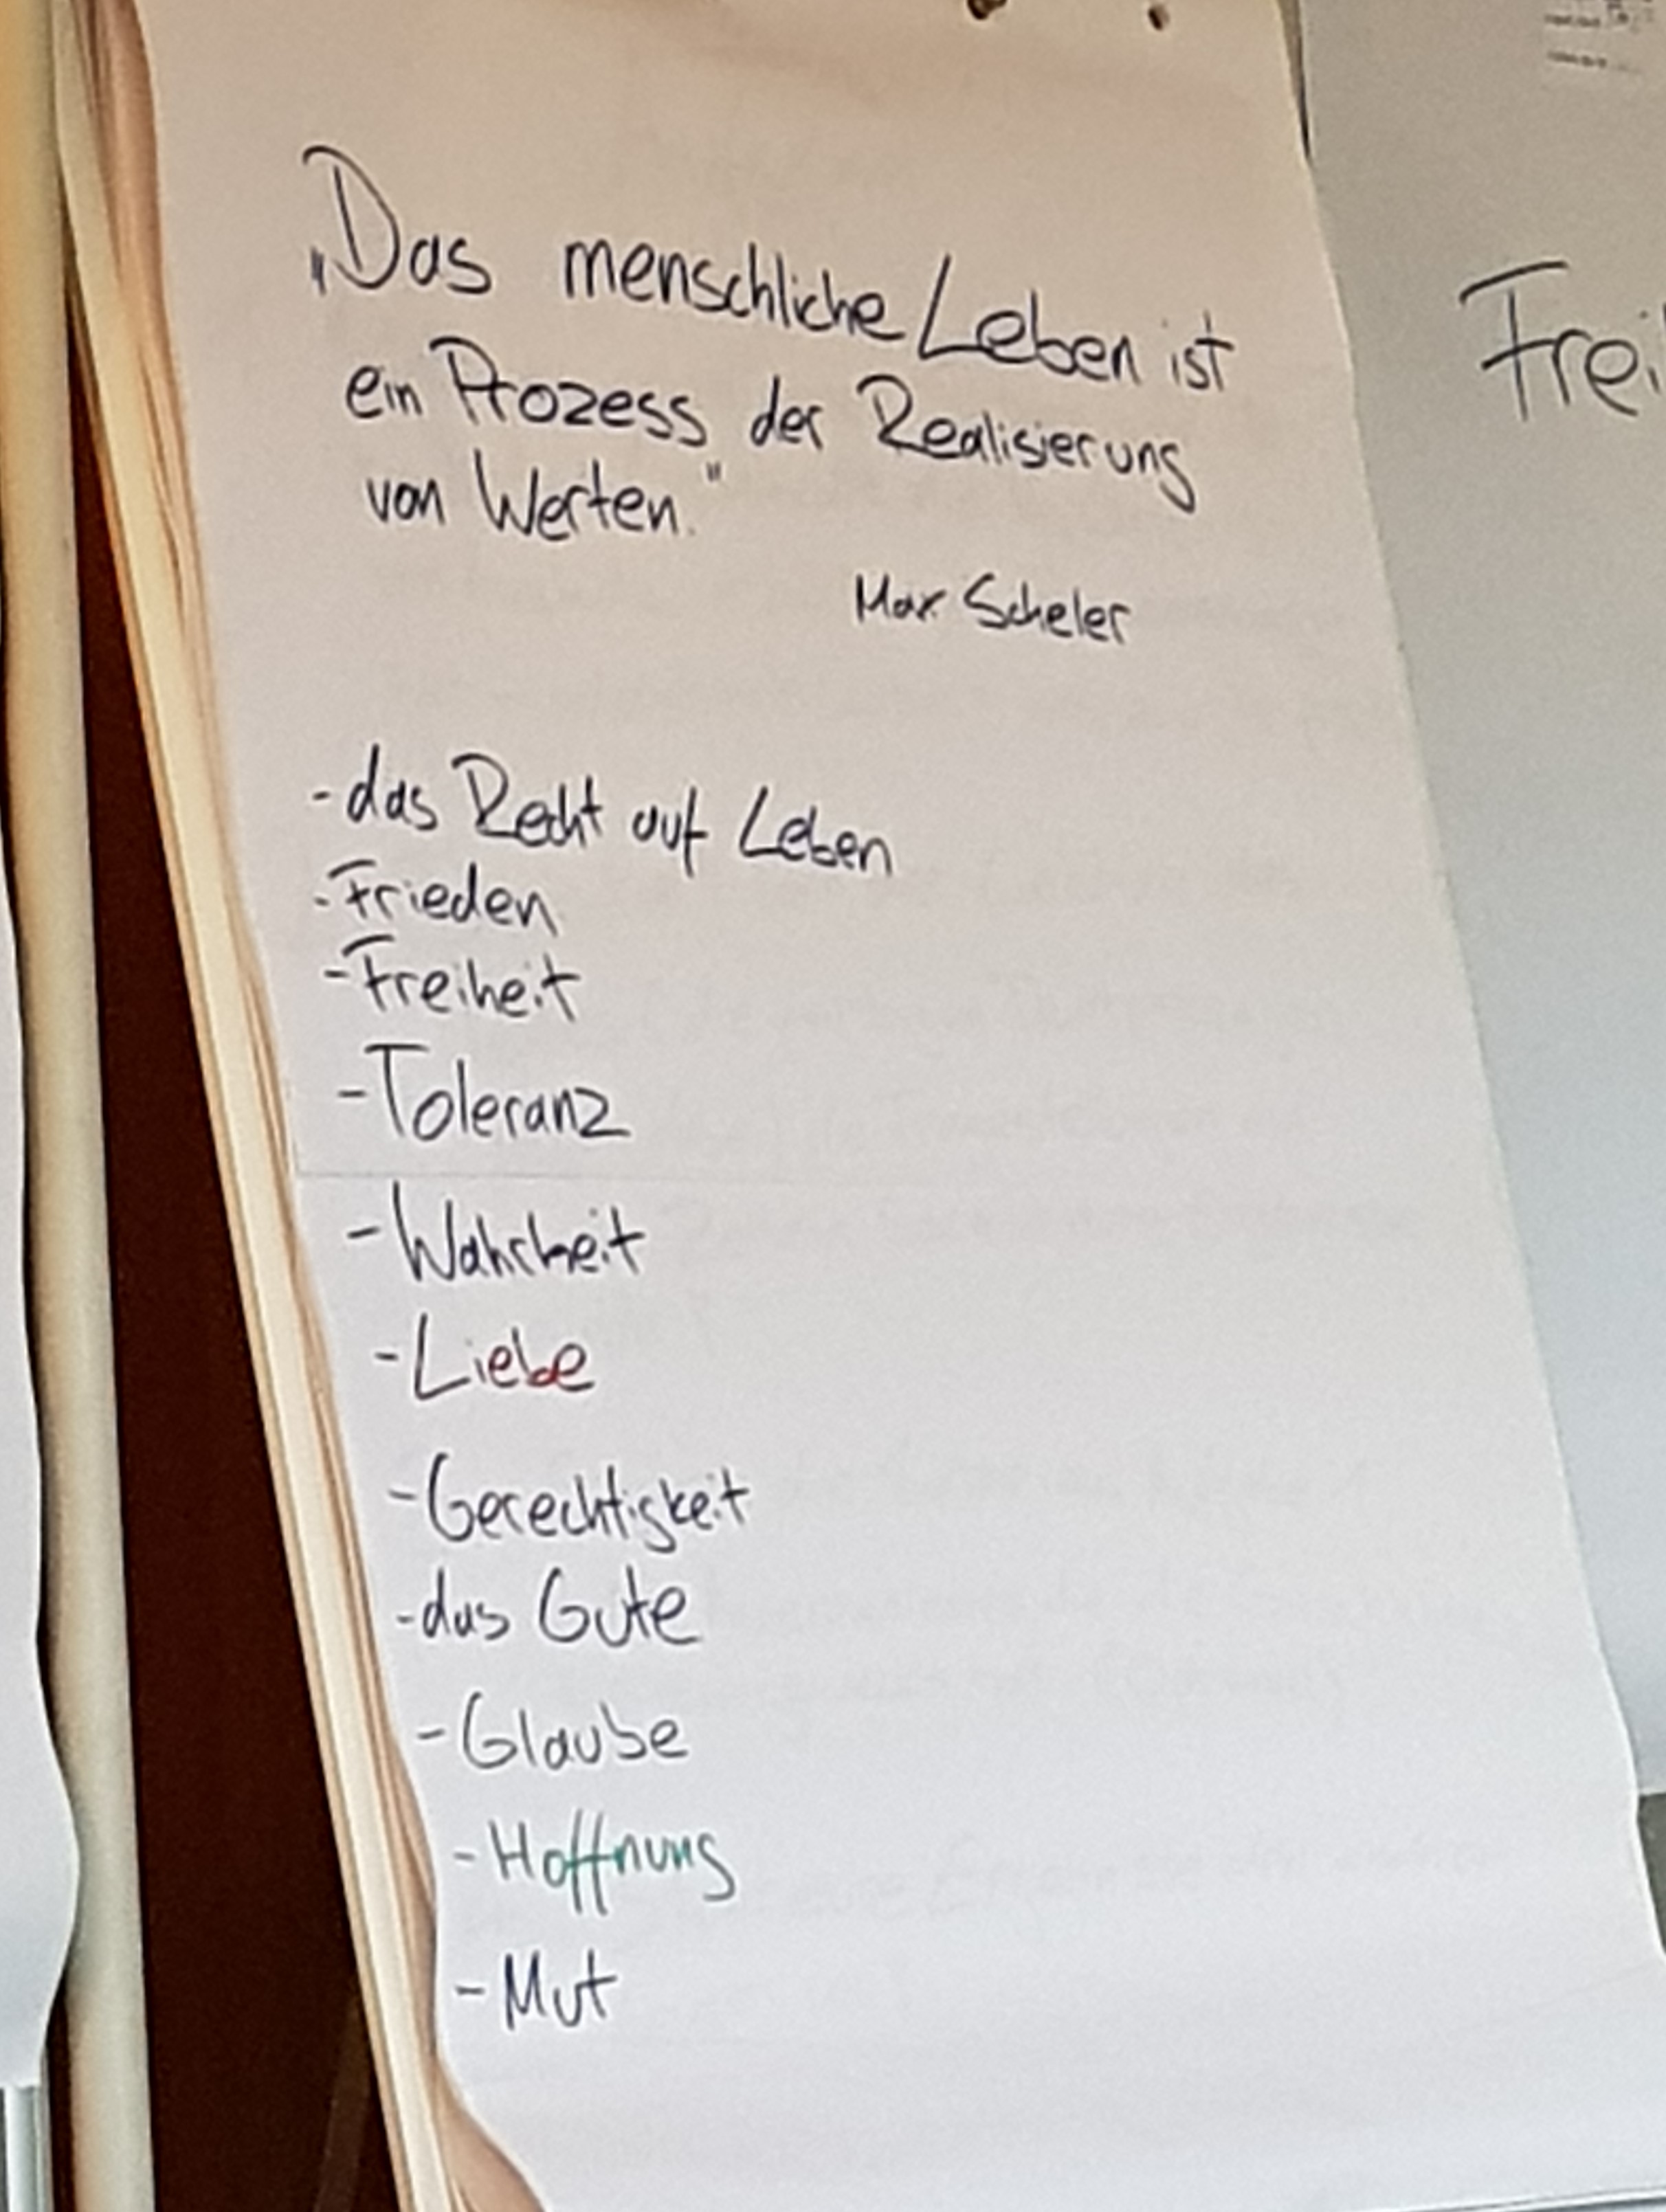 „Das menschliche Leben ist
ein Prozess der Realisierung
von Werten."
Max Scheler
- das Recht auf Leben
- Frieden
- Freiheit
- Toleranz
- Wahrheit
- Liebe
- Gerechtigkeit
- das Gute
- Glaube
- Hoffnung
- Mut
Frei